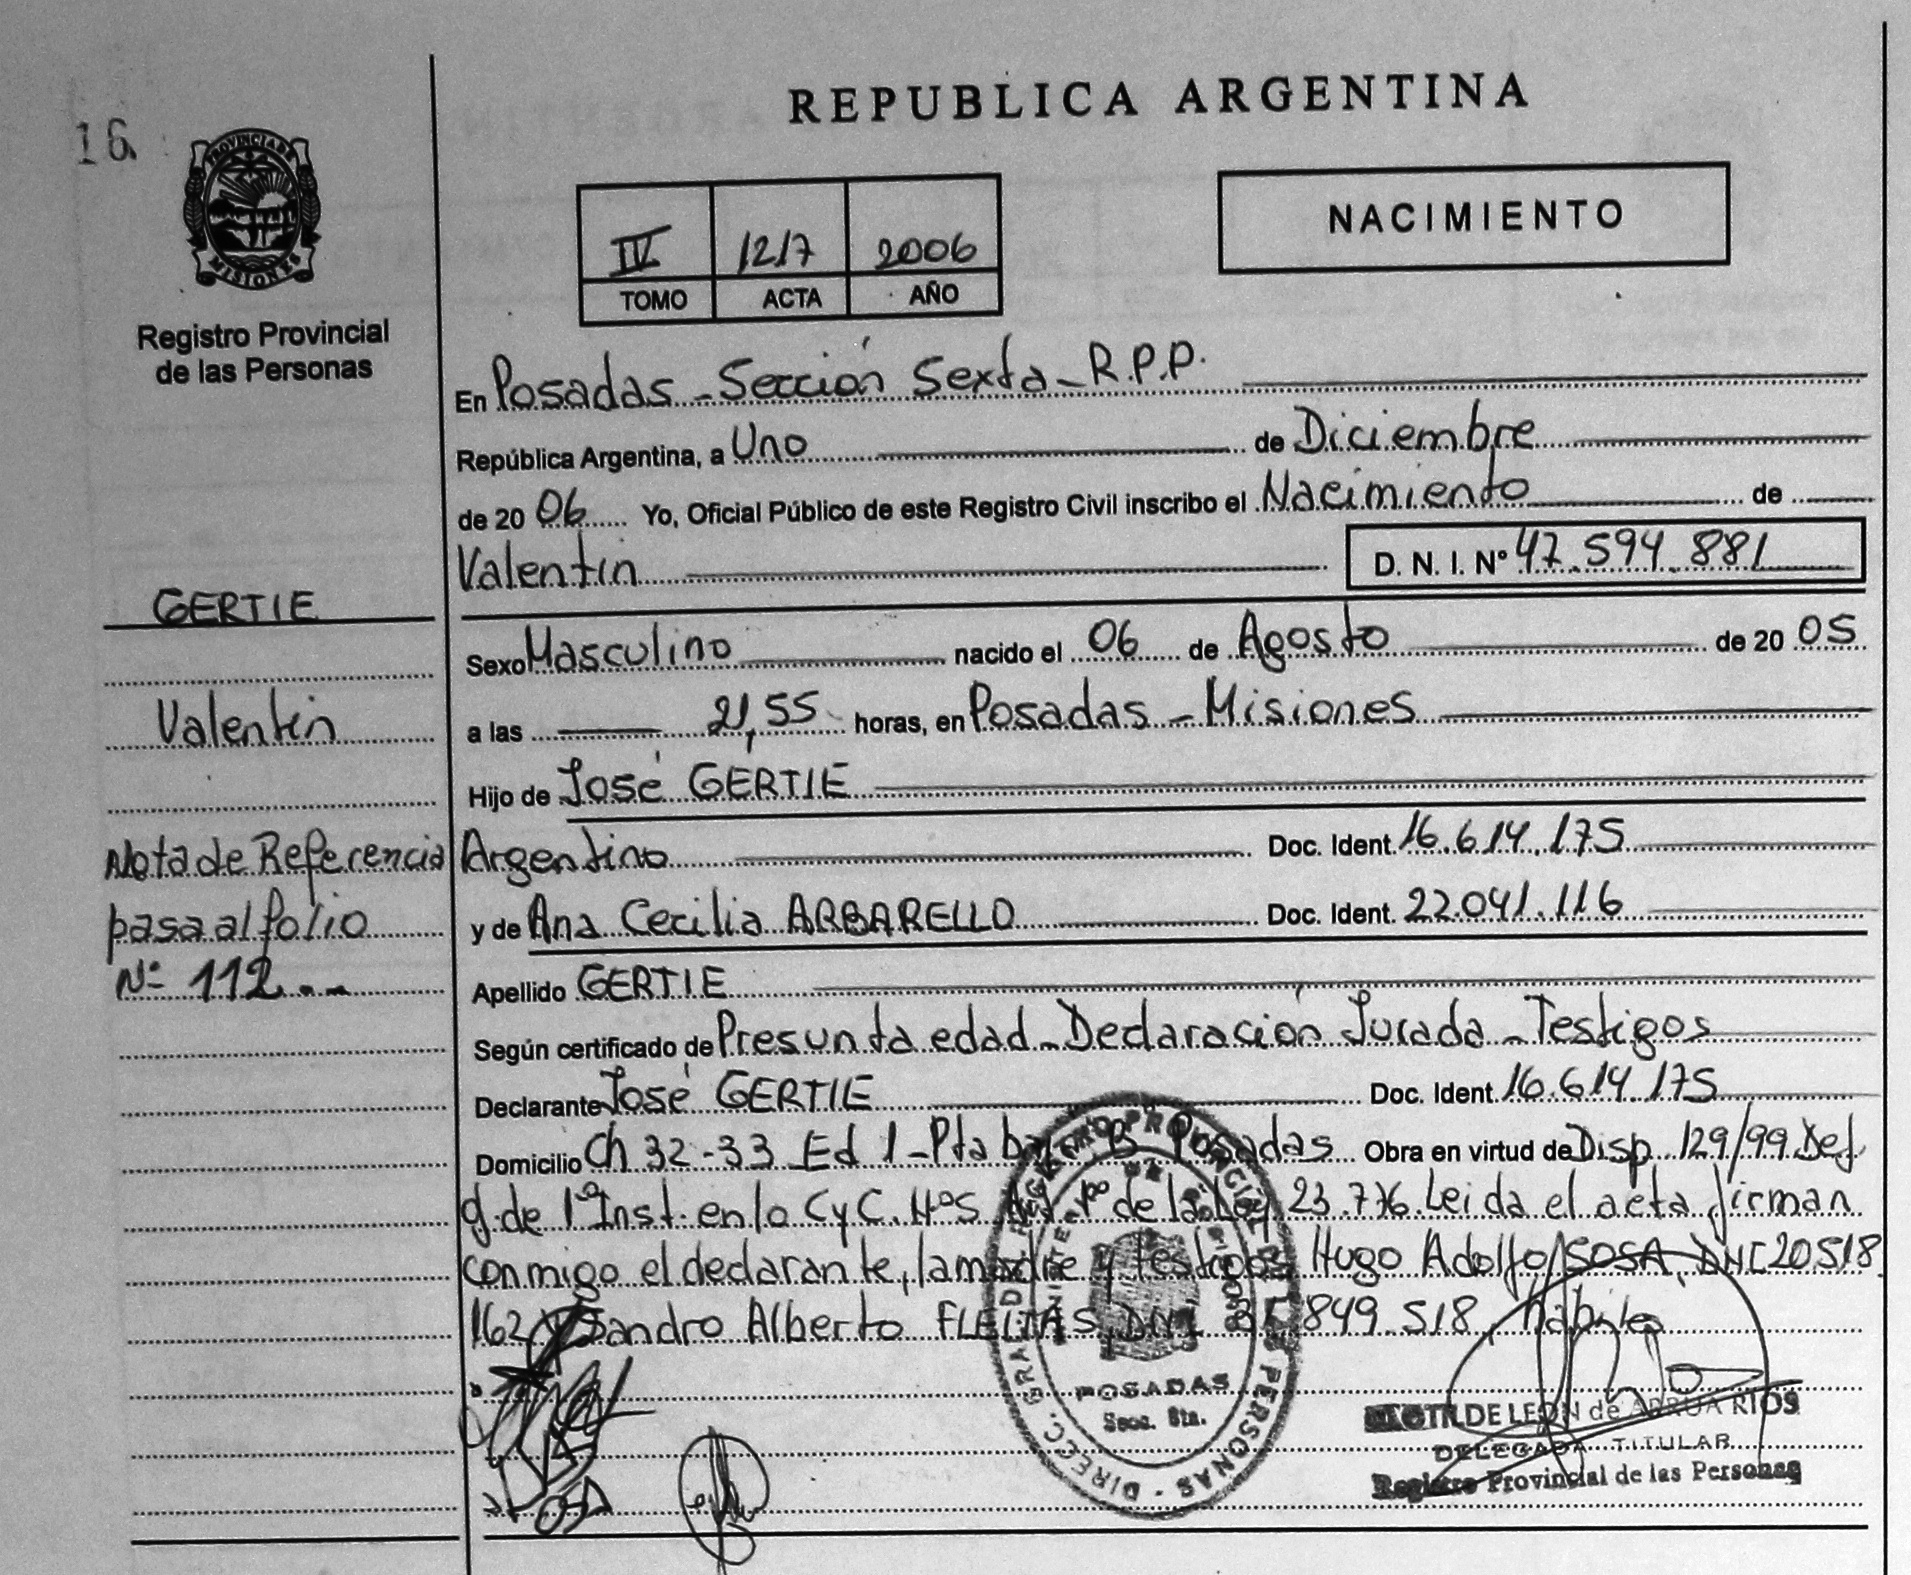 REPUBLICA ARGENTINA
16
PROVINCIA DE
MISIONES
Registro Provincial
de las Personas
IV 1217 2006
TOMO ACTA AÑO
NACIMIENTO
En Posadas - Sección Sexta - R.P.P.
República Argentina, a Uno de Diciembre
de 20 06 Yo, Oficial Público de este Registro Civil inscribo el Nacimiento de
Valentín D. N. I. N° 47.594.881
GERTIE
Sexo Masculino nacido el 06 de Agosto de 20 05
Valentín
a las 21,55 horas, en Posadas - Misiones
Hijo de José GERTIE
Nota de Referencia
pasa al folio
Nº 112
Argentino Doc. Ident. 16.614.175
y de Ana Cecilia ARBARELLO Doc. Ident. 22.041.116
Apellido GERTIE
Según certificado de Presunta edad - Declaración Jurada - Testigos
Declarante José GERTIE Doc. Ident. 16.614.175
Domicilio Ch 32-33 Ed 1 - Pta baja B Posadas Obra en virtud de Disp. 129/99 Def.
g. de 1º Inst. en lo C y C. Nº5 Art. 1º de la Ley 23.776. Leida el acta firman
conmigo el declarante, la madre y testigos Hugo Adolfo SOSA, DNI 20518
162 y Sandro Alberto FLEITAS, DNI 849.518, habiles
DIRECC. GRAL. DEL REGISTRO PROVINCIAL DE LAS PERSONAS
POSADAS
Secc. 6ta.
CLOTILDE LEON de ARRUA RIOS
DELEGADA TITULAR
Registro Provincial de las Personas